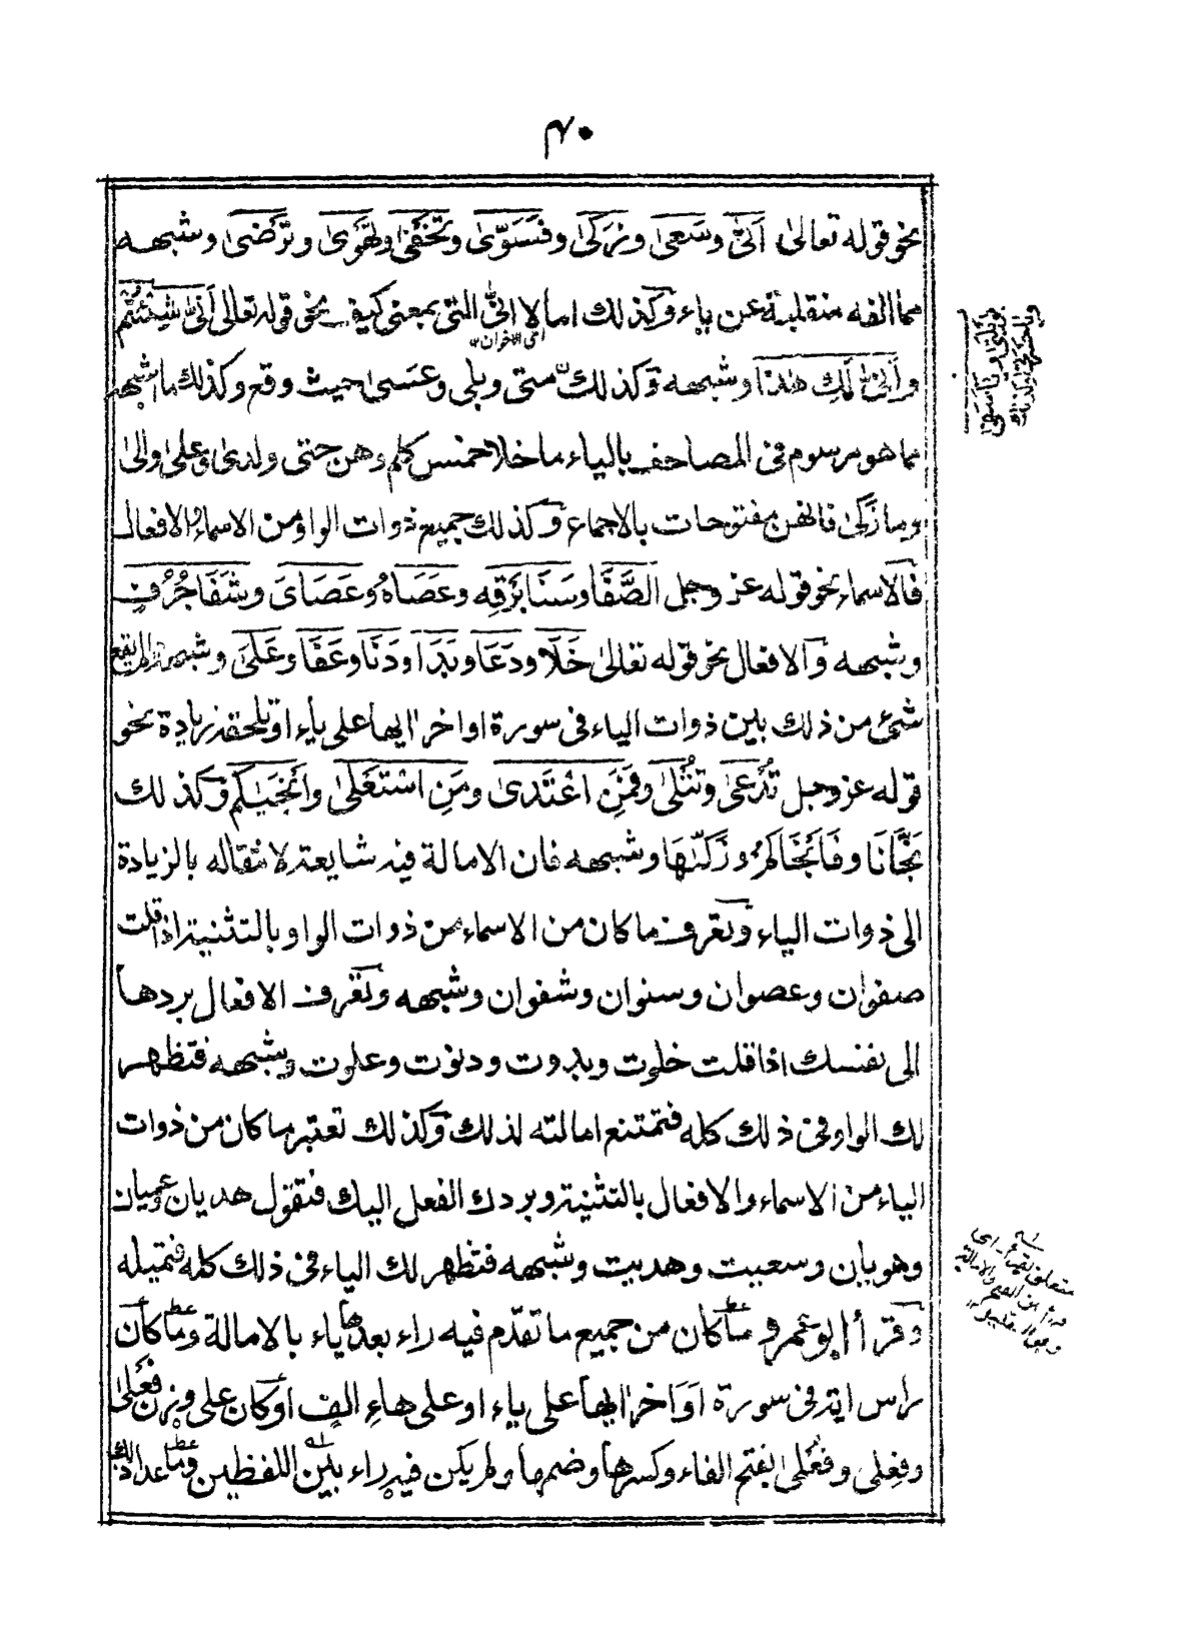 ۴۰
نحو قوله تعالى اَتٰى وسَعٰى وزَكٰى وفَسَوّٰى وتَخْفٰى وتَهْوٰى وتَرْضٰى وشبهه
مما الفه منقلبة عن ياء وكذلك امالا انّٰى التى بمعنى كيف نحو قوله تعالى اَنّٰى شِئْتُمْ
اى الاخوان
وانّٰى لَكِ هٰذا وشبهه وكذلك متى وبلى وعسى حيث وقع وكذلك ما اشبهه
مما هو مرسوم فى المصاحف بالياء ما خلا خمس كلم وهن حتى ولدى وعلى والى
وما زَكٰى فانهن مفتوحات بالاجماع وكذلك جميع ذوات الواو من الاسماء والافعال
فالاسماء نحو قوله عز وجل الصَّفَا وسَنَا بَرْقِهِ وعَصَاهُ وعَصَاىَ وشَفَا جُرُفٍ
وشبهه والافعال نحو قوله تعالى خَلَا ودَعَا وبَدَا ودَنَا وعَفَا وعَلَى وشبهه ما لم يقع
شئ من ذلك بين ذوات الياء فى سورة اواخر ايها على ياء او تلحقه زيادة نحو
قوله عز وجل تُدْعٰى وتُتْلٰى وفَمَنِ اعْتَدٰى ومَنِ اسْتَعْلٰى واَنْجَيٰكم وكذلك
نَجَّانَا وفَاَنْجَاكم وزَكّٰىهَا وشبهه فان الامالة فيه شايعة لانتقاله بالزيادة
الى ذوات الياء وتعرف ما كان من الاسماء من ذوات الواو بالتثنية اذا قلت
صفوان وعصوان وسنوان وشفوان وشبهه وتعرف الافعال بردها
الى نفسك اذا قلت خلوت وبدوت ودنوت وعلوت وشبهه فتظهر
لك الواو فى ذلك كله فتمتنع امالته لذلك وكذلك تعتبر ما كان من ذوات
الياء من الاسماء والافعال بالتثنية وبردك الفعل اليك فتقول هديان وعميان
وهويان وسعيت وهديت وشبهه فتظهر لك الياء فى ذلك كله فتميله
وقرأ ابو عمرو ما كان من جميع ما تقدّم فيه راء بعدها ياء بالامالة وما كان
راس اية فى سورة اواخر ايها على ياء او على هاءِ الف او كان على وزن فَعْلٰى
وفِعلى وفُعْلى بفتح الفاء وكسرها وضمها ولم يكن فيه راء بين اللفظين وما عدا ذلك